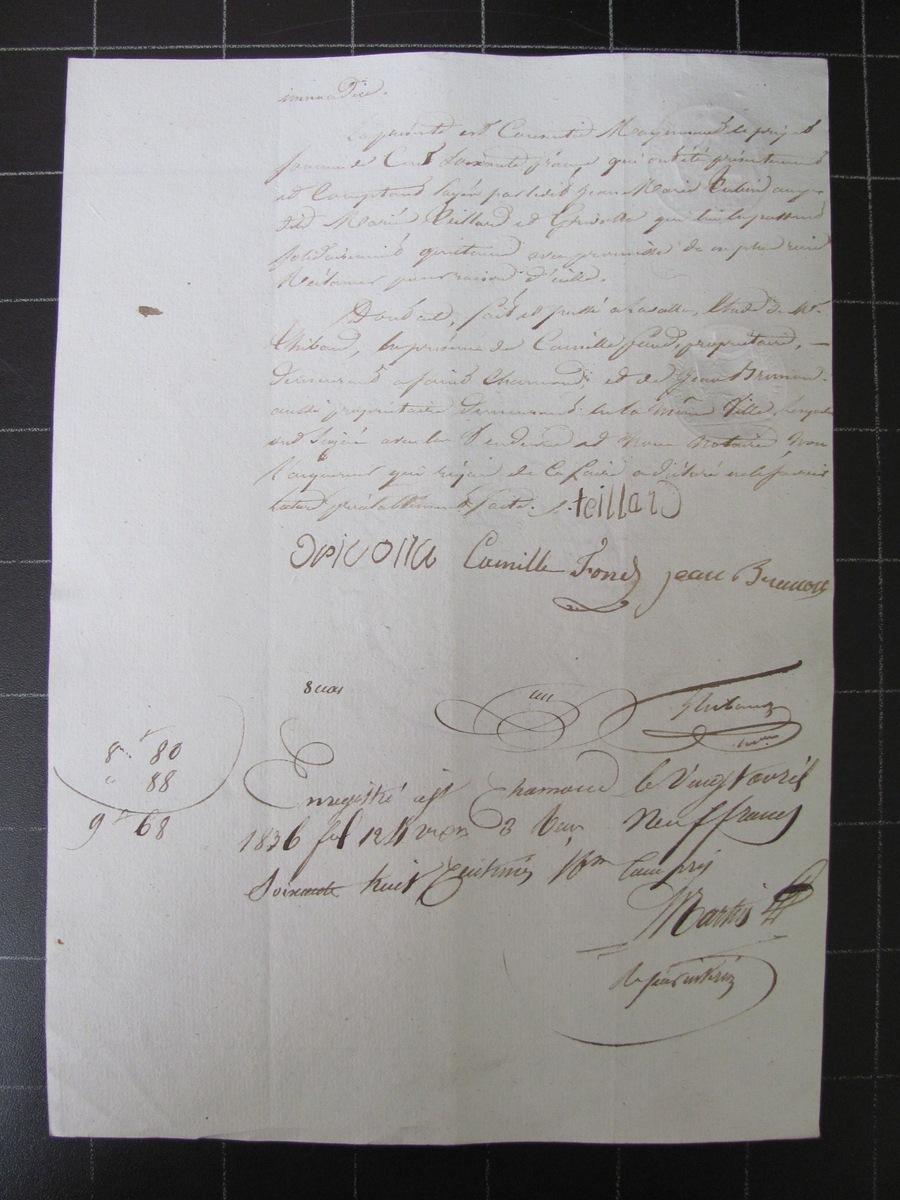 immédiate.
La présente est Consentie Moyennant le prix et
somme de Cent soixante francs, qui ont été présentement
et Comptant payés par ledit Jean Marie
dits Marie Teillard et qui lui en passent
solidairement quittance avec promesse de ne plus rien
Réclamer pour raison d'icelle.
Dont acte, fait et passé à Lavalla, Etude de Me.
Thibaud, En présence de Camille Fond, propriétaire, —
demeurant à saint Chamond et de Jean Brunon
aussi propriétaire demeurant en la même Ville, Lesquels
ont signé avec les Vendeurs et Nous Notaire Non
l'acquéreur qui requis de Le faire a déclaré ne le savoir
Lecture préalablement faite. teillard
Camille Fond jean Brunon
Thibaud
8 80
88
9 68
Enregistré à St Chamond le Vingt avril
1836 fol 124 Reçu Neuf francs
Soixante huit Centimes Compris
Martin